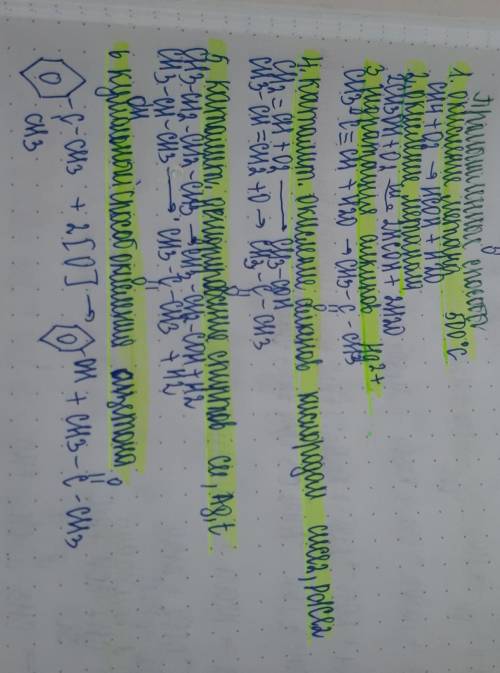 Промышленные способы
1. окисление метана 500°C
CH4 + O2 → HCOH + H2O
2. окисление метанола
2CH3OH + O2 → 2HCOH + 2H2O
3. гидратация алкинов Hg2+
CH3-C≡CH + H2O → CH3-C-CH3
O
4. каталит. окисление алкенов кислородом CuCl2, PdCl2
CH2=CH + O2 → CH3-COH
CH3-CH=CH2 + O → CH3-C-CH3
O
5. каталит. дегидрирование спиртов Cu, Ag, t
CH3-CH2-CH2-CH3 → CH3-CH2-COH + H2
CH3-CH-CH3 → CH3-C-CH3 + H2
OH O
6 кумольный способ окисления ацетона
-C-CH3 + 2[O] → + CH3-C-CH3
CH3 O